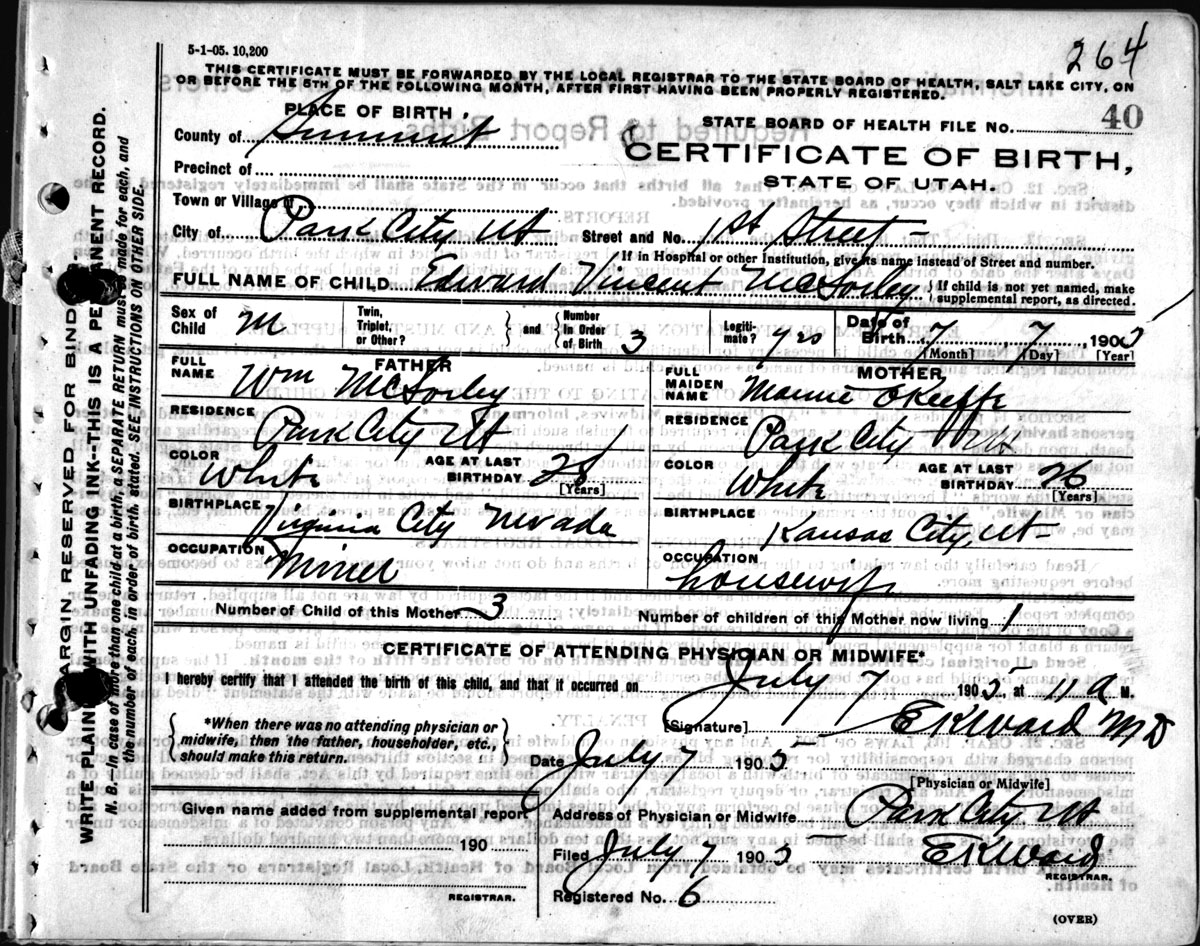 264
5-1-05. 10,200
THIS CERTIFICATE MUST BE FORWARDED BY THE LOCAL REGISTRAR TO THE STATE BOARD OF HEALTH, SALT LAKE CITY, ON
OR BEFORE THE 5TH OF THE FOLLOWING MONTH, AFTER FIRST HAVING BEEN PROPERLY REGISTERED.
PLACE OF BIRTH
STATE BOARD OF HEALTH FILE NO. 40
County of Summit
CERTIFICATE OF BIRTH,
Precinct of
STATE OF UTAH.
Town or Village of
City of Park City Ut Street and No. 1st Street
*If in Hospital or other Institution, give its name instead of Street and number.
FULL NAME OF CHILD Edward Vincent McSorley { If child is not yet named, make supplemental report, as directed.
Sex of Child M Twin, Triplet, or Other? } and { Number in Order of Birth 3 Legiti-mate? yes Date of Birth 7 7 1905
[Month] [Day] [Year]
FATHER MOTHER
FULL NAME Wm McSorley FULL MAIDEN NAME Mamie OKeeffe
RESIDENCE Park City Ut RESIDENCE Park City Ut
COLOR White AGE AT LAST BIRTHDAY 28 [Years] COLOR White AGE AT LAST BIRTHDAY 26 [Years]
BIRTHPLACE Virginia City Nevada BIRTHPLACE Kansas City, Ut
OCCUPATION Miner OCCUPATION housewife
Number of Child of this Mother 3 Number of children of this Mother now living 1
CERTIFICATE OF ATTENDING PHYSICIAN OR MIDWIFE*
I hereby certify that I attended the birth of this child, and that it occurred on July 7 1905, at 11 a M.
{ *When there was no attending physician or midwife, then the father, householder, etc., should make this return. }
[Signature] EKWard MD
Date July 7 1905
[Physician or Midwife]
Given name added from supplemental report
Address of Physician or Midwife Park City Ut
190
Filed July 7 1905 EKWard
REGISTRAR.
REGISTRAR.
Registered No. 6
(OVER)
MARGIN RESERVED FOR BINDING
WRITE PLAINLY WITH UNFADING INK--THIS IS A PERMANENT RECORD.
N. B.--In case of more than one child at a birth, a SEPARATE RETURN must be made for each, and
the number of each, in order of birth, stated. SEE INSTRUCTIONS ON OTHER SIDE.